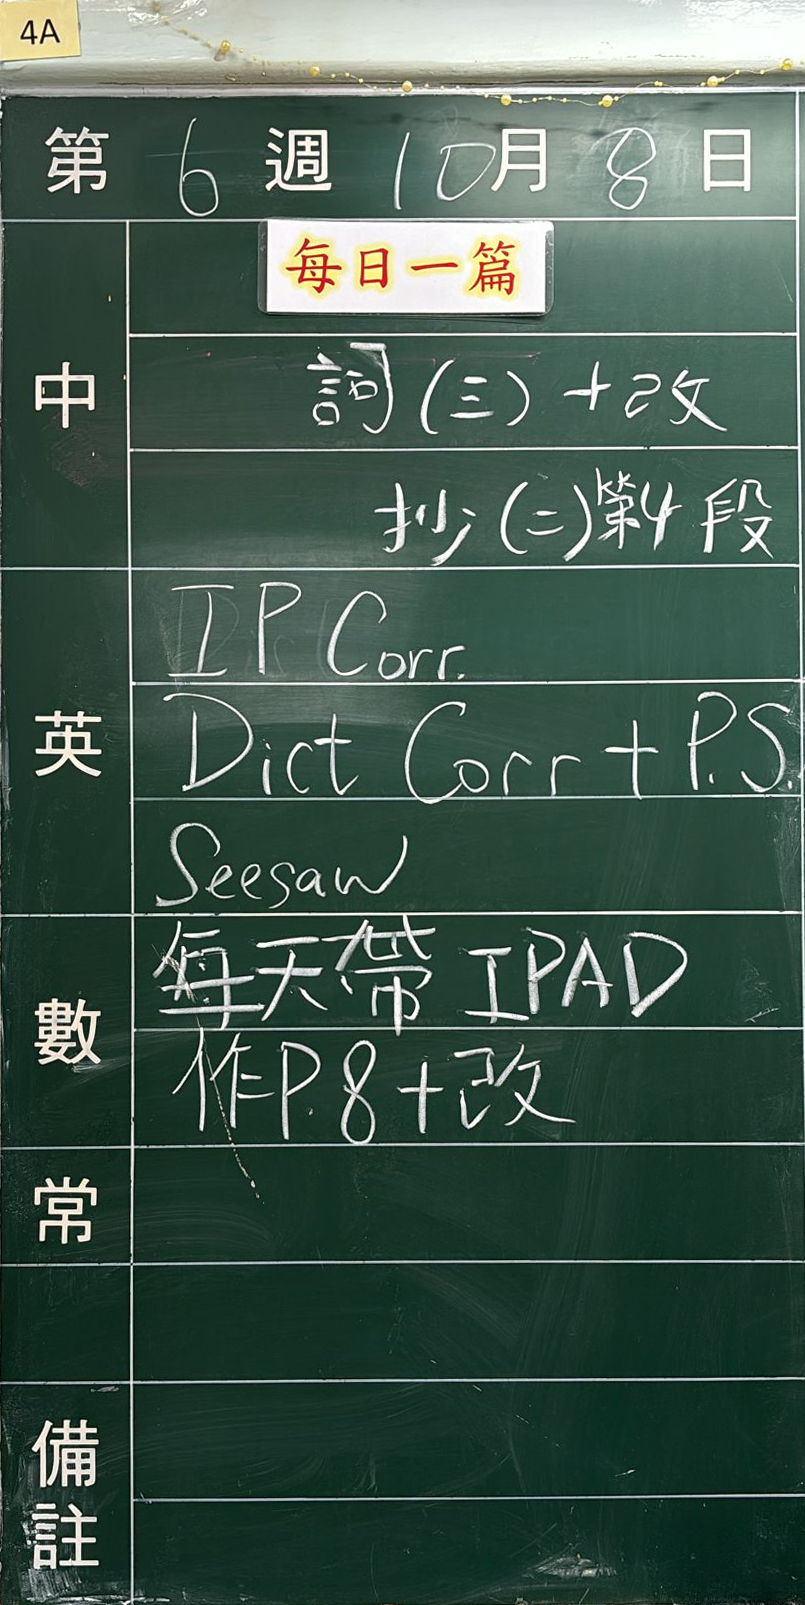 4A
第 6 週 10月 8 日
中
每日一篇
詞(三)+改
抄(二)第4段
英
IP Corr.
Dict Corr + P.S.
Seesaw
數
每天帶 IPAD
作P.8+改
常
備註